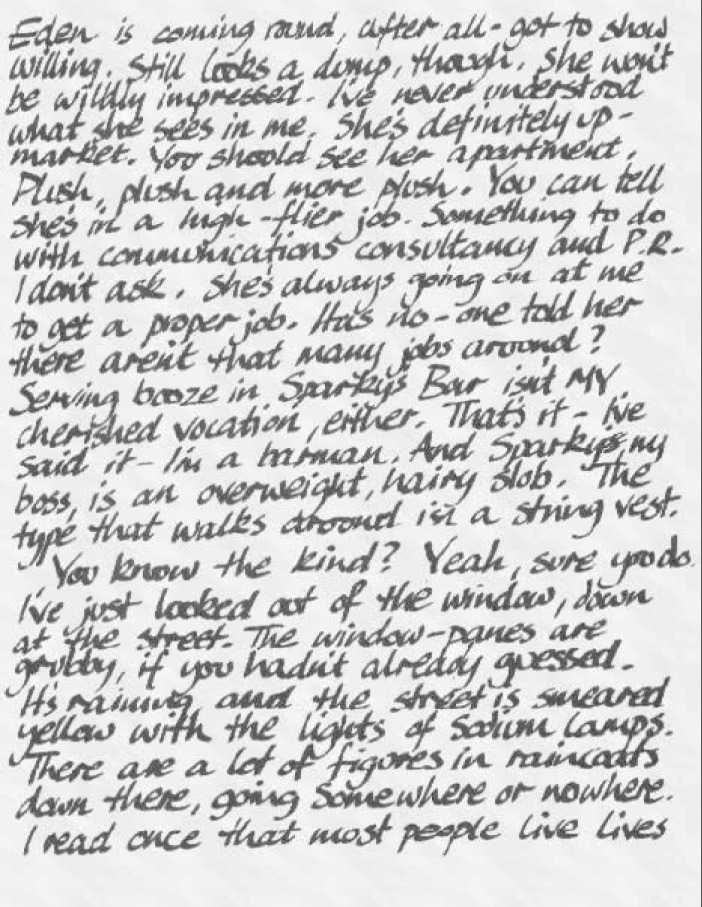 Eden is coming round, after all - got to show
willing. Still looks a dump, though. She won't
be wildly impressed. I've never understood
what she sees in me. She's definitely up-
market. You should see her apartment.
Plush, plush and more plush. You can tell
she's in a high-flier job. Something to do
with communications consultancy and P.R.
I don't ask. She's always going on at me
to get a proper job. Has no-one told her
there aren't that many jobs around?
Serving booze in Sparky's Bar isn't MY
cherished vocation, either. That's it - I've
said it - I'm a barman. And Sparky, my
boss, is an overweight, hairy slob. The
type that walks around in a string vest.
You know the kind? Yeah, sure you do.
I've just looked out of the window, down
at the street. The window-panes are
grubby, if you hadn't already guessed.
It's raining, and the street is smeared
yellow with the lights of Sodium Lamps.
There are a lot of figures in raincoats
down there, going somewhere or nowhere.
I read once that most people live lives